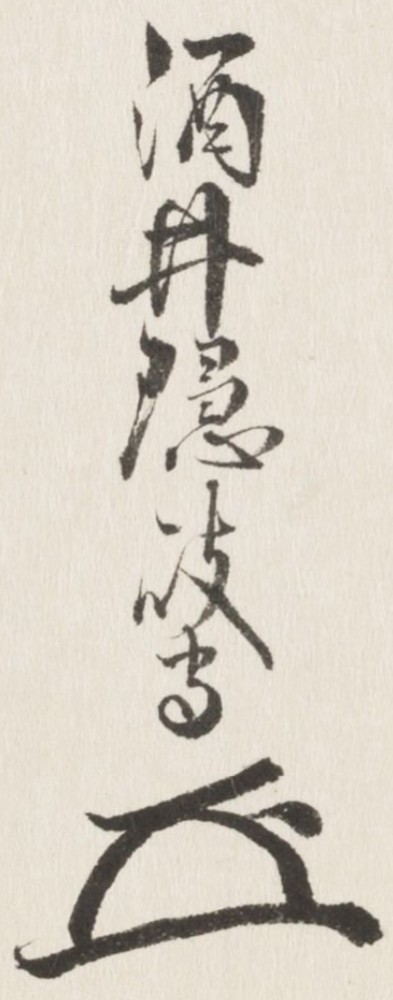 酒井隠岐守